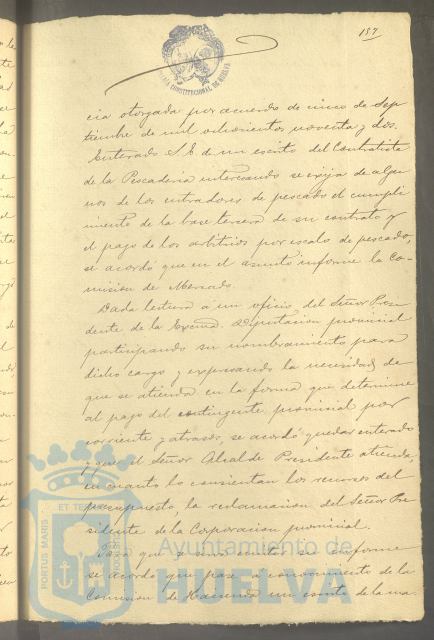 187
ALCALDIA CONSTITUCIONAL DE HUELVA
cia otorgada por acuerdo de cinco de Sep
tiembre de mil ochocientos noventa y dos.
Enterado S. E. de un escrito del Contratista
de la Pescadería interesando se exija de algu
nos de los entradores de pescado el cumpli
miento de la base tercera de su contrato y
el pago de los arbitrios por escala de pescado,
se acordó que en el asunto informe la Co-
misión de Mercado.
Dada lectura a un oficio del Señor Presi
dente de la Excma. Diputación provincial
participando su nombramiento para
dicho cargo y expresando la necesidad de
que se atienda en la forma que determine
al pago del contingente provincial por
corriente y atrasos, se acordó quedar enterado
y que el Señor Alcalde Presidente atienda,
en cuanto lo consientan los recursos del
presupuesto, la reclamación del Señor Pre
sidente de la Corporación provincial.
Para que en su vista se informe
se acordó que pase a conocimiento de la
Comisión de Hacienda un escrito de la ma
PORTUS MARIS ET TERRAE CUSTODIA
Ayuntamiento de
HUELVA